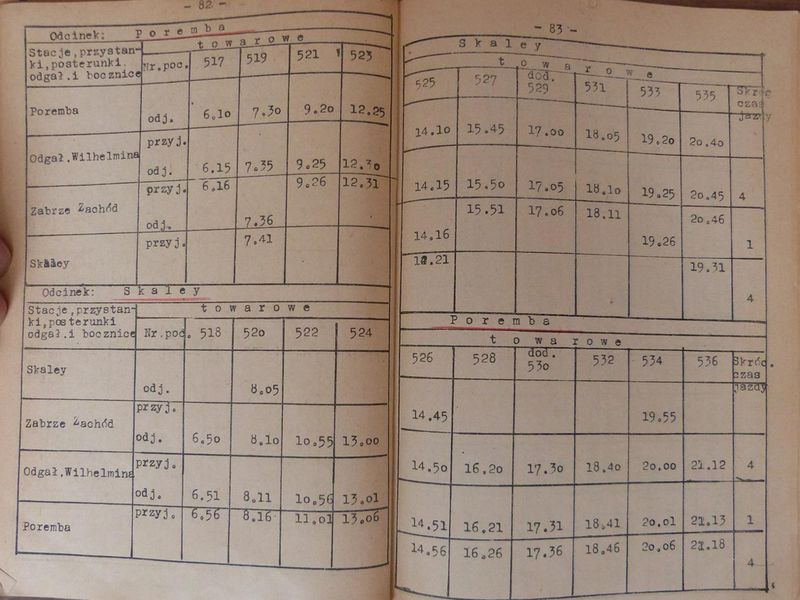 - 82 -
Odcinek: Poremba
Stacje,przystan-
ki,posterunki.
odgał.i bocznice
towarowe
Nr.poc. 517 519 521 523
Poremba
odj. 6.10 7.30 9.20 12.25
przyj.
Odgał.Wilhelmina
odj. 6.15 7.35 9.25 12.30
przyj. 6.16 9.26 12.31
Zabrze Zachód
odj. 7.36
przyj. 7.41
Skaley
Odcinek: Skaley
Stacje,przystan-
ki,posterunki
odgał.i bocznice
towarowe
Nr.poc. 518 520 522 524
Skaley
odj. 8.05
przyj.
Zabrze Zachód
odj. 6.50 8.10 10.55 13.00
przyj.
Odgał.Wilhelmina
odj. 6.51 8.11 10.56 13.01
przyj. 6.56 8.16 11.01 13.06
Poremba
- 83 -
Skaley
towarowe
525 527 dod. 529 531 533 535 Skróc
czas
jazdy
14.10 15.45 17.00 18.05 19.20 20.40
14.15 15.50 17.05 18.10 19.25 20.45 4
15.51 17.06 18.11 20.46
14.16 19.26 1
19.31
4
Poremba
towarowe
526 528 dod. 530 532 534 536 Skróc.
czas
jazdy
14.45 19.55
14.50 16.20 17.30 18.40 20.00 21.12 4
14.51 16.21 17.31 18.41 20.01 21.13 1
14.56 16.26 17.36 18.46 20.06 21.18
4